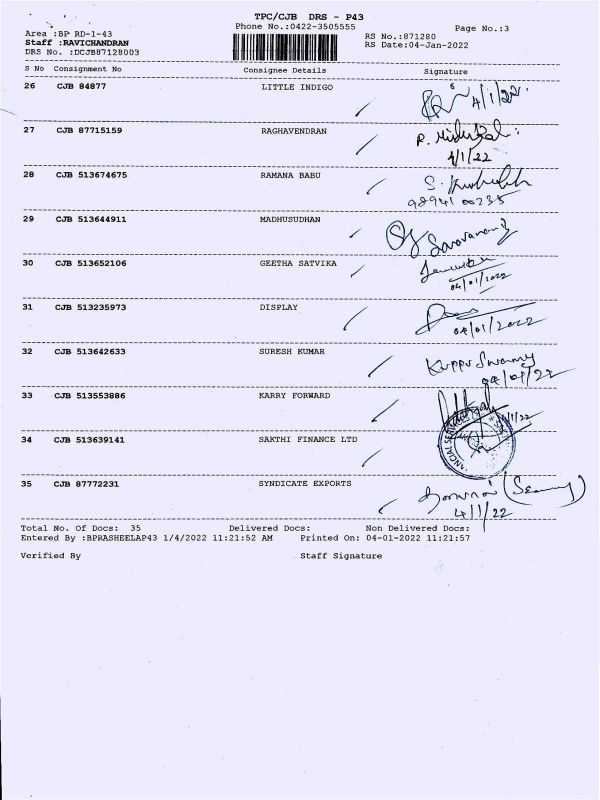 TPC/CJB DRS - P43
Phone No.:0422-3505555
Page No.:3
Area :BP RD-1-43
RS No.:871280
Staff :RAVICHANDRAN
RS Date:04-Jan-2022
DRS No. :DCJB87128003
S No Consignment No Consignee Details Signature
26 CJB 84877 LITTLE INDIGO 4/1/22
27 CJB 87715159 RAGHAVENDRAN
4/1/22
28 CJB 513674675 RAMANA BABU
98941 00235
29 CJB 513644911 MADHUSUDHAN
30 CJB 513652106 GEETHA SATVIKA
04/01/2022
31 CJB 513235973 DISPLAY
04/01/2022
32 CJB 513642633 SURESH KUMAR KuppuSwamy
04/01/22
33 CJB 513553886 KARRY FORWARD
34 CJB 513639141 SAKTHI FINANCE LTD
35 CJB 87772231 SYNDICATE EXPORTS
4/1/22
Total No. Of Docs: 35 Delivered Docs: Non Delivered Docs:
Entered By :BPRASHEELAP43 1/4/2022 11:21:52 AM Printed On: 04-01-2022 11:21:57
Verified By Staff Signature